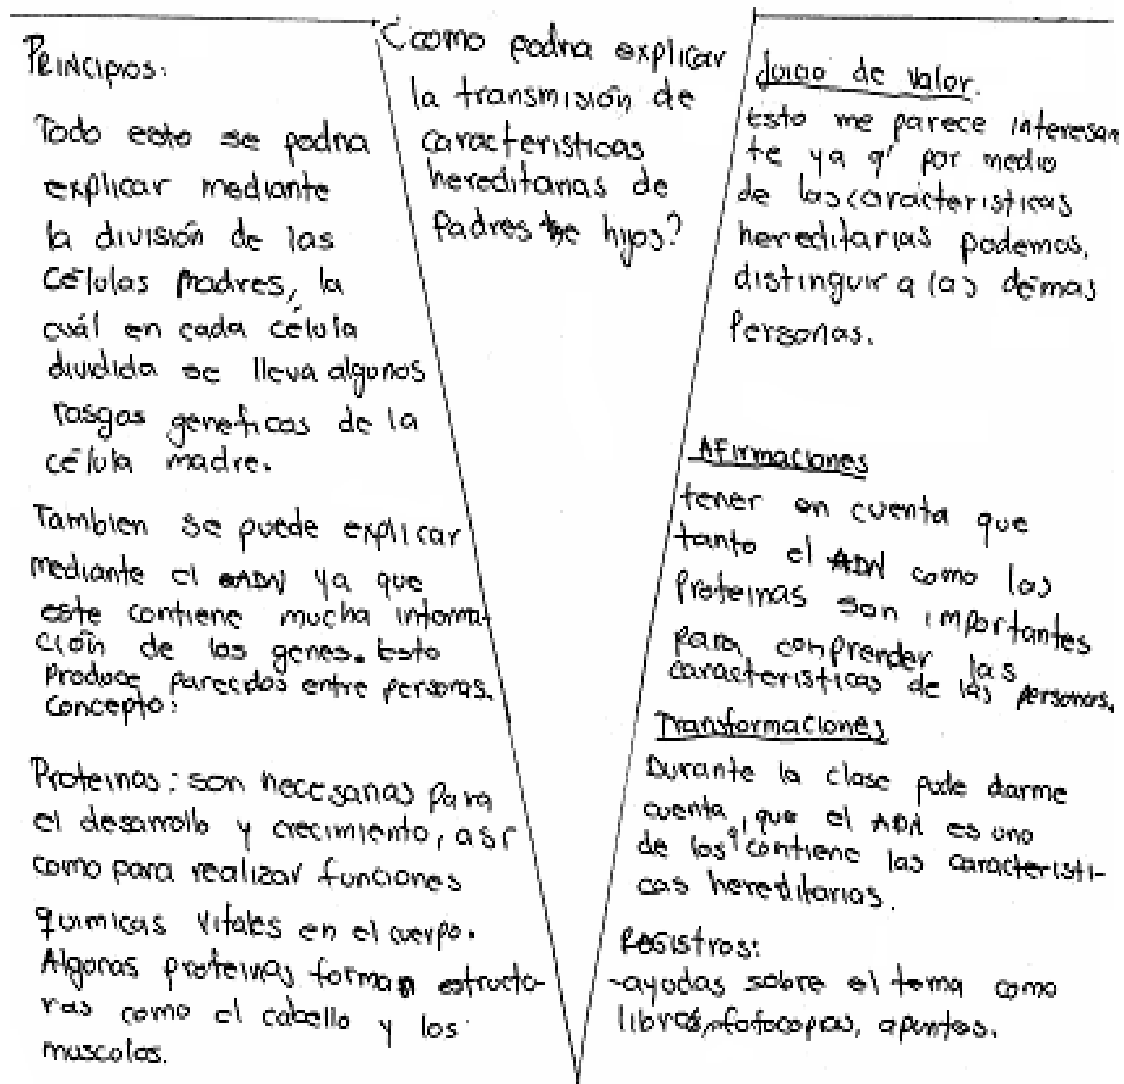 Principios:
Todo esto se podria
explicar mediante
la división de las
Células Madres, la
cuál en cada célula
dividida se lleva algunos
rasgos geneticos de la
célula madre.
Tambien se puede explicar
mediante el ADN ya que
este contiene mucha informa
ción de los genes. Esto
Produce parecidos entre personas.
Concepto:
Proteinas: son necesarias para
el desarrollo y crecimiento, asi
como para realizar funciones
quimicas vitales en el cuerpo.
Algunas proteinas forman estructu-
ras como el cabello y los
musculos.
¿como podria explicar
la transmisión de
caracteristicas
hereditarias de
Padres he hijos?
Juicio de valor.
Esto me parece interesan
te ya q' por medio
de las caracteristicas
hereditarias podemos,
distinguir a las demas
Personas.
Afirmaciones
tener en cuenta que
tanto el ADN como las
Proteinas son importantes
para comprender las
caracteristicas de las personas.
Transformaciones
Durante la clase pude darme
cuenta, que el ADN es uno
de los q' contiene las caracteristi-
cas hereditarias.
Registros:
-ayudas sobre el tema como
libros, fotocopias, apuntes.